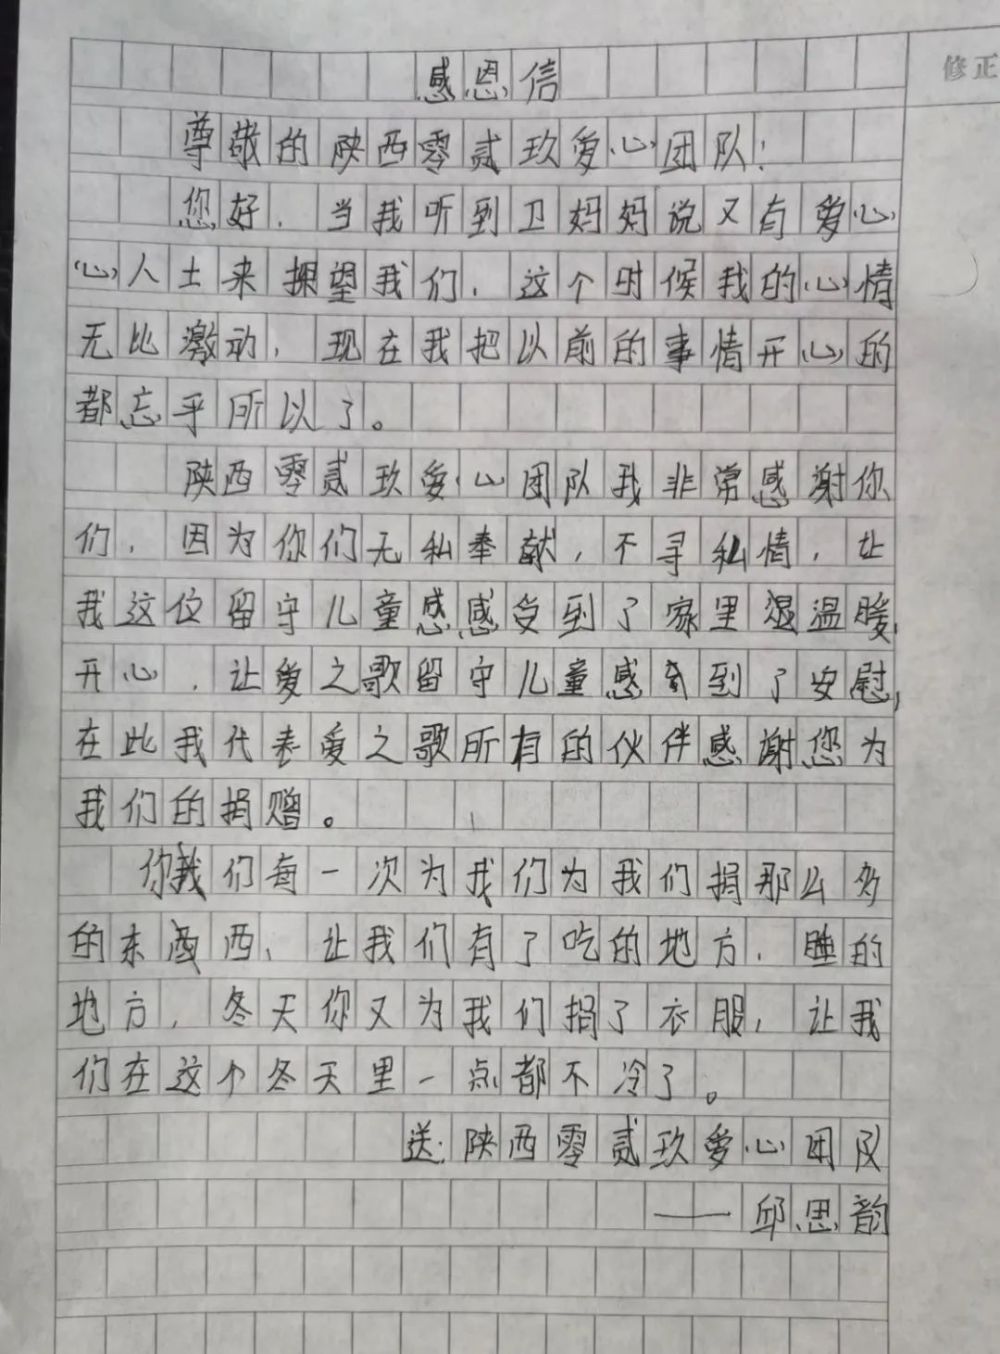 感恩信
修正
尊敬的陕西零贰玖爱心团队！
您好，当我听到卫妈妈说又有爱心
心人士来探望我们，这个时候我的心情
无比激动，现在我把以前的事情开心的
都忘乎所以了。
陕西零贰玖爱心团队我非常感谢你
们，因为你们无私奉献，不寻私情，让
我这位留守儿童感感受到了家里温温暖，
开心，让爱之歌留守儿童感到了安慰，
在此我代表爱之歌所有的伙伴感谢您为
我们的捐赠。
你我们每一次为我们为我们捐那么多
的东西西，让我们有了吃的地方，睡的
地方，冬天你又为我们捐了衣服，让我
们在这个冬天里一点都不冷了。
送：陕西零贰玖爱心团队
——邱思韵